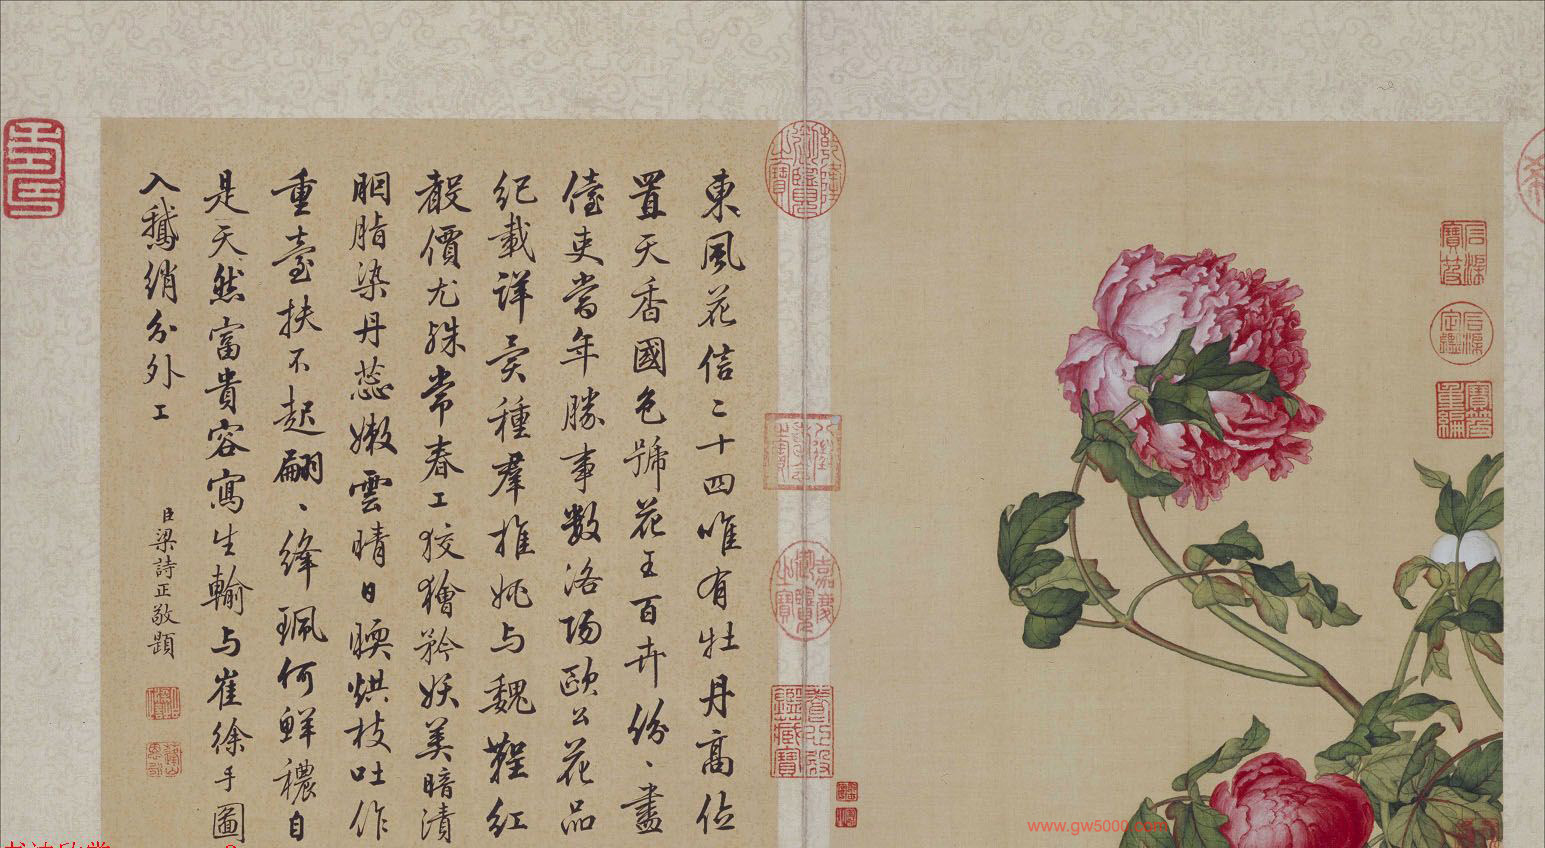 東風花信二十四唯有牡丹高位
置天香國色號花王百卉份、盡
僮吏當年勝事數洛陽歐公花品
紀載詳奕種羣推姚与魏鞓紅
聲價尤殊常春工狡獪矜妖美暗漬
胭脂染丹蕊嫩雲晴日暖烘枝吐作
重臺扶不起翩、絳珮何鮮穠自
是天然富貴容寫生輸与崔徐手圖
入鵝綃分外工
臣梁詩正敬題
乾隆御覽之寶
嘉慶御覽之寶
www.gw5000.com